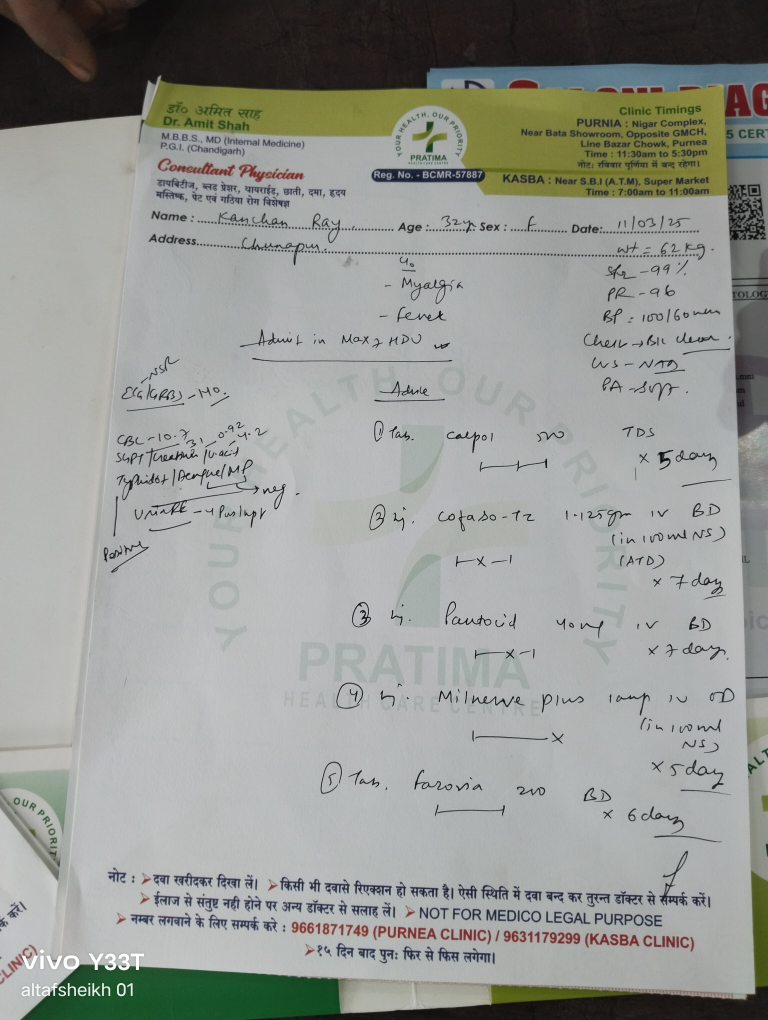 डॉ० अमित साह
Dr. Amit Shah
M.B.B.S., MD (Internal Medicine)
P.G.I. (Chandigarh)
Consultant Physician
डायबिटीज, ब्लड प्रेशर, थायराईड, छाती, दमा, हृदय
मस्तिष्क, पेट एवं गठिया रोग विशेषज्ञ
YOUR HEALTH, OUR PRIORITY
PRATIMA
HEALTH CARE CENTRE
Reg. No. - BCMR-57887
Clinic Timings
PURNIA : Nigar Complex,
Near Bata Showroom, Opposite GMCH,
Line Bazar Chowk, Purnea
Time : 11:30am to 5:30pm
नोट: रविवार पूर्णिया में बन्द रहेगा।
KASBA : Near S.B.I (A.T.M), Super Market
Time : 7:00am to 11:00am
Name : Kanchan Ray Age : 32y Sex : F Date: 11/03/25
Address Chunapur
wt = 62 kg.
- Myalgia
- Fever
- 99%
PR - 96
BP = 100/60
Chest → B/L clear
PA - Soft
Admit in Max 7 HDU
NSR
ECG/GRBS - 140
Advice
CBC - 10.7
SGPT/Creatinine/U.acid
31 0.92 4.2
Typhidot/Dengue/MP
→ neg.
Positive
① Tab. Calpol 500 TDS
x 5 days
② Inj. Cofaso-TZ 1.125gm IV BD
(in 100ml NS)
(ATD)
x 7 day
③ Inj. Pantocid 40mg IV BD
x 7 days
④ Inj. Milnerve plus 1amp IV OD
(in 100ml
NS)
x 5 day
⑤ Tab. Farovia 200 BD
x 6 days
YOUR HEALTH OUR PRIORITY
PRATIMA
HEALTH CARE CENTRE
नोट : ➤ दवा खरीदकर दिखा लें। ➤ किसी भी दवासे रिएक्शन हो सकता है। ऐसी स्थिति में दवा बन्द कर तुरन्त डॉक्टर से सम्पर्क करें।
➤ ईलाज से संतुष्ट नही होने पर अन्य डॉक्टर से सलाह लें। ➤ NOT FOR MEDICO LEGAL PURPOSE
➤ नम्बर लगवाने के लिए सम्पर्क करे : 9661871749 (PURNEA CLINIC) / 9631179299 (KASBA CLINIC)
➤ १५ दिन बाद पुनः फिर से फिस लगेगा।
OUR PRIORITY
CLINIC)
vivo Y33T
altafsheikh 01